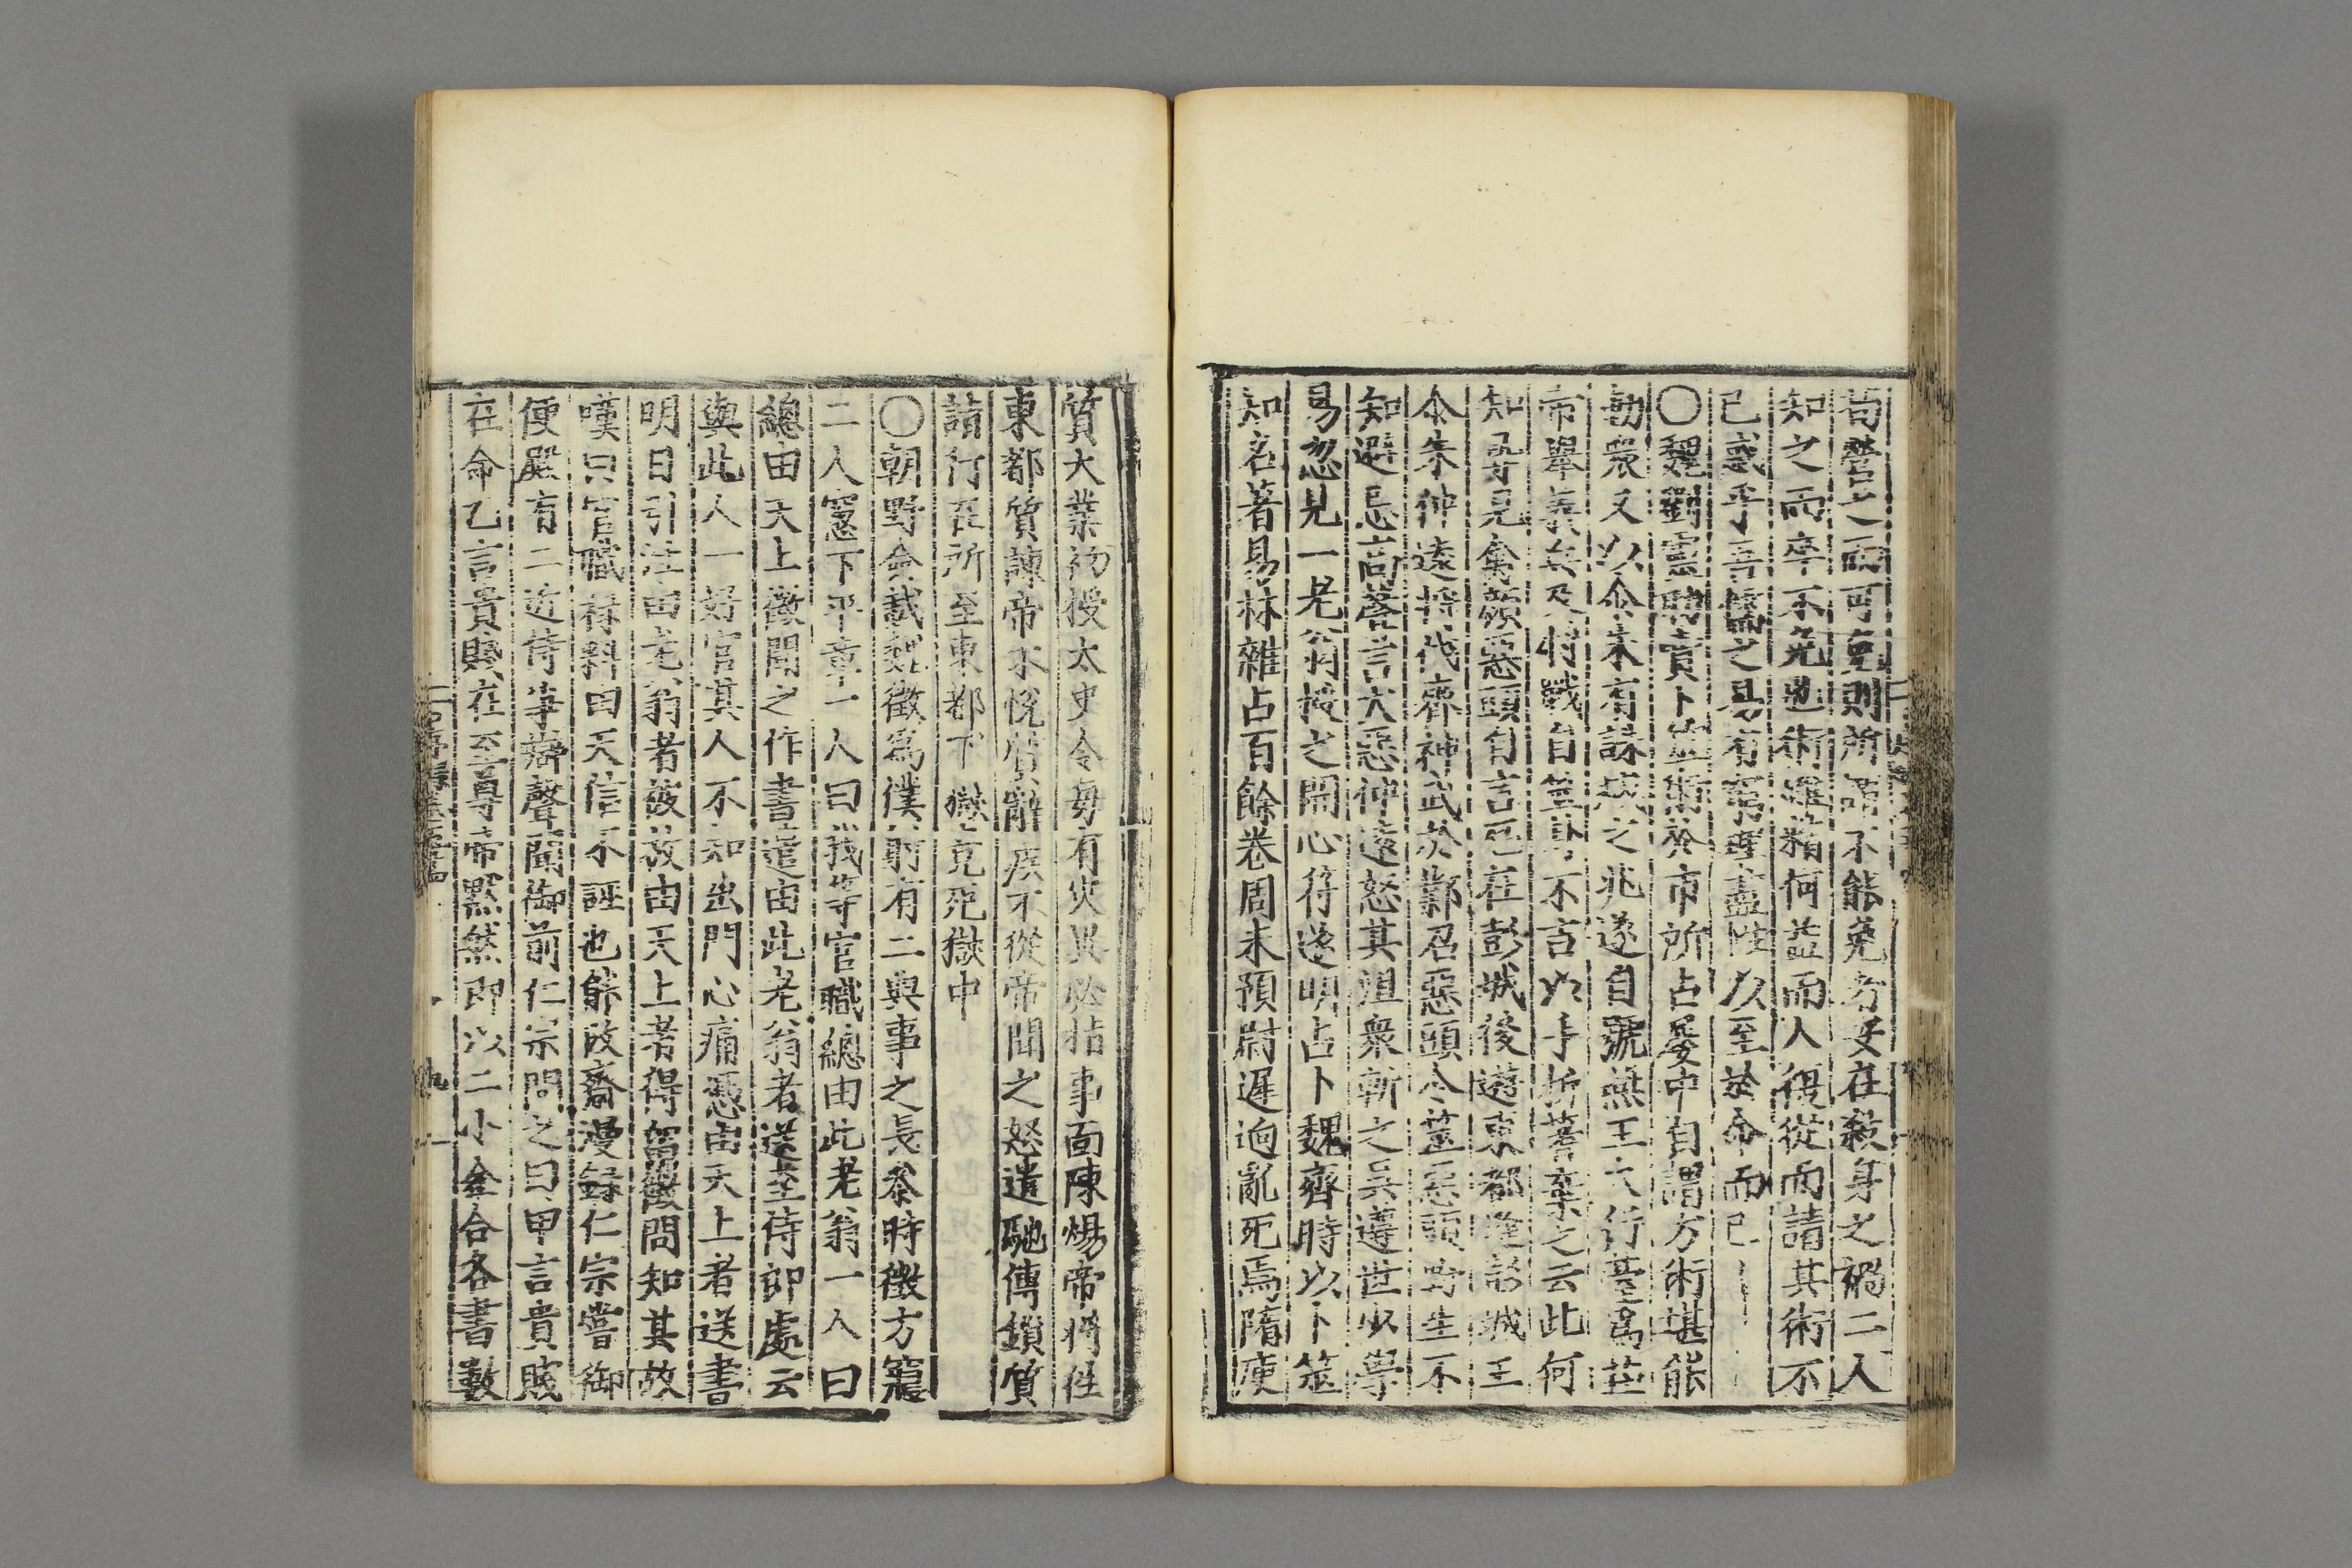 苟營之而可免則所謂不能免者妄在殺身之禍二人
知之而卒不免也術雖精何益而人復從而請其術不
已惑乎吾儒之易有窮理盡性以至於命而已
〇魏劉靈助賣卜筮術於市所占屢中自謂方術堪能
動衆又以尒朱有誅滅之兆遂自號燕王大行臺爲莊
帝舉義兵及將戰自筮卦不吉以手折蓍棄之云此何
知尋見禽顏惡頭自言厄在彭城後遊東都逢彭城王
尒朱仲遠將伐齊神武於鄴召惡頭令筮惡頭野生不
知避忌高荅言大惡仲遠怒其沮衆斬之吳遵世少學
易忽見一老翁授之開心符遂明占卜魏齊時以卜筮
知名著易林雜占百餘卷周末預尉遲逈亂死焉隋庾
質大業初授太史令毎有灾異必指事面陳煬帝將徃
東都質諫帝不悅質辭疾不從帝聞之怒遣馳傳鎖質
詣行在所至東都下獄竟死獄中
〇朝野僉載魏徵爲僕射有二典事之長參時徵方寢
二人窻下平章一人曰我等官職總由此老翁一人曰
總由天上徵聞之作書遣由此老翁者送至侍郎處云
與此人一好官其人不知出門心痛憑由天上者送書
明日引注由老翁者被放由天上者得留徵問知其故
嘆曰官職祿料由天信不誣也能改齋漫録仁宗嘗御
便殿有二近侍爭辯聲聞御前仁宗問之曰甲言貴賤
在命乙言貴賤在至尊帝默然即以二小金合各書數